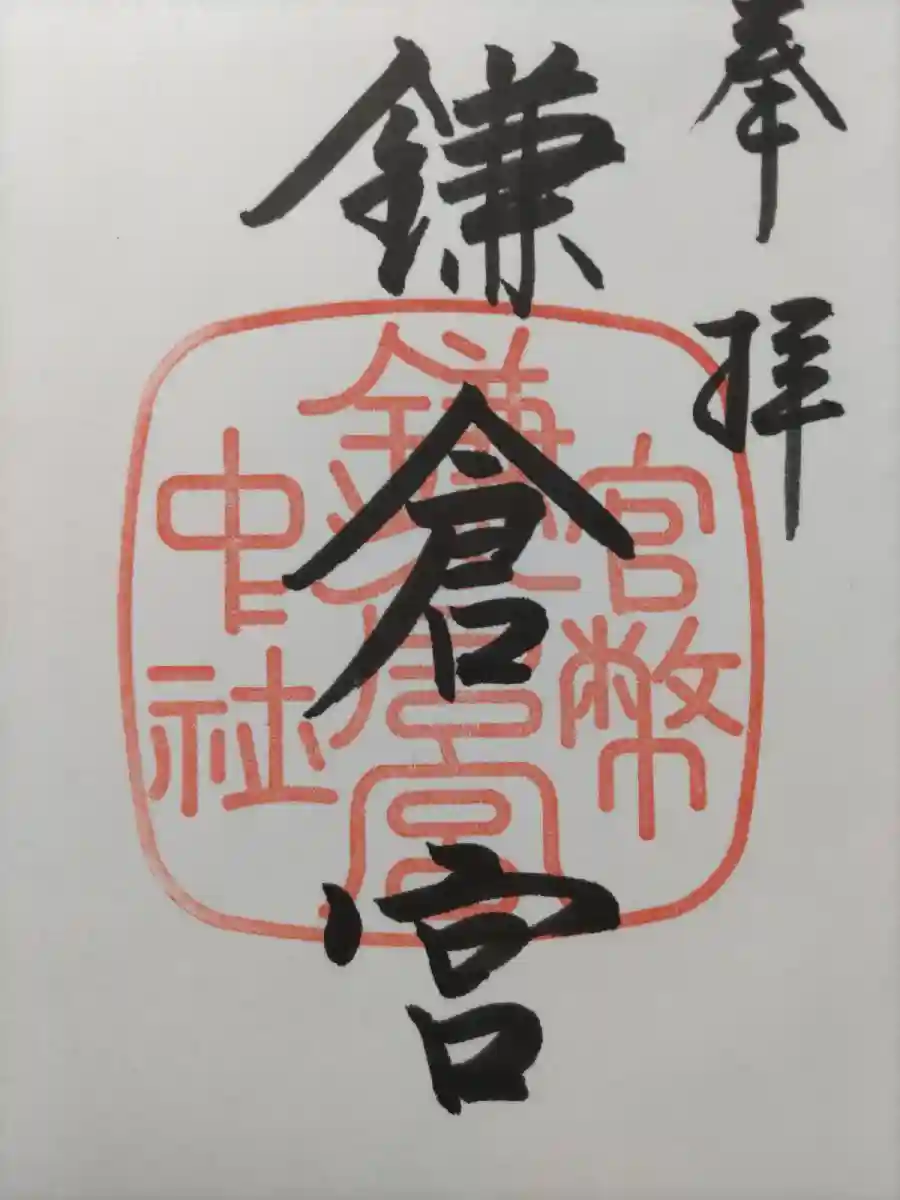 奉拝
鎌倉宮
官幣
鎌倉宮
中社